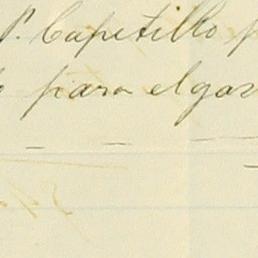 P. Capetillo p
o para el gas